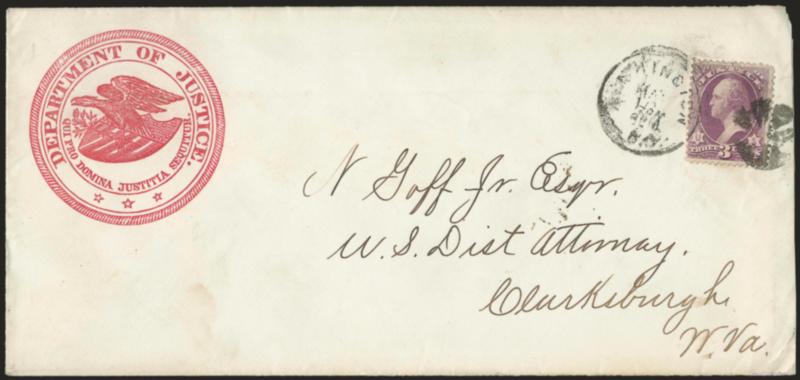 DEPARTMENT OF JUSTICE.
QUI PRO DOMINA JUSTITIA SEQUITUR.
WASHINGTON
D.C.
JUSTICE
THREE 3 CENTS
N Goff Jr. Esqr.
U.S. Dist Attorney.
Clarksburgh
W.Va.